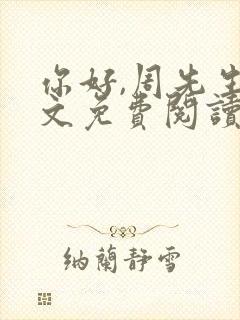 你好,周先生
文免費閱讀
納蘭靜雪